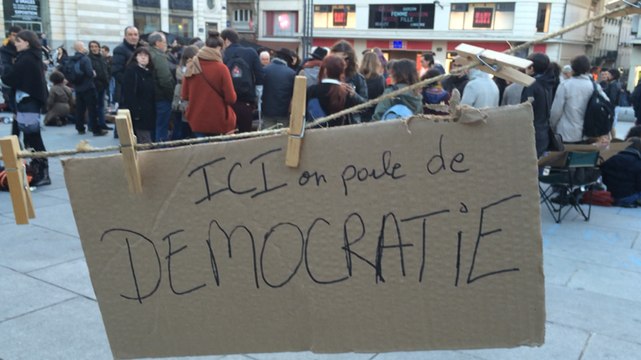 ICI on parle de
DEMOCRATiE